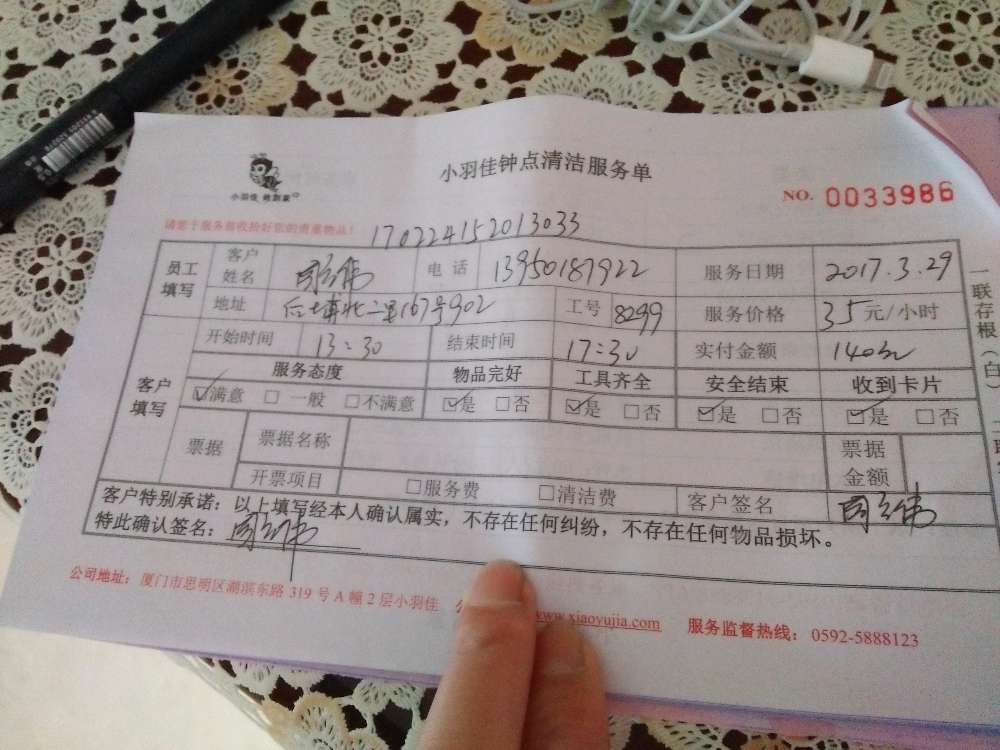 小羽佳钟点清洁服务单
小羽佳 收到家
NO. 0033986
请您于服务前收拾好您的贵重物品!
170224152013033
员工填写 客户姓名 周立伟 电话 13950187922 服务日期 2017.3.29
地址 后埔北二里167号902 工号 8299 服务价格 35元/小时
客户填写 开始时间 13:30 结束时间 17:30 实付金额 140元
服务态度 物品完好 工具齐全 安全结束 收到卡片
☑满意 □一般 □不满意 ☑是 □否 ☑是 □否 ☑是 □否 ☑是 □否
票据 票据名称 票据金额
开票项目 □服务费 □清洁费 客户签名 周立伟
客户特别承诺:以上填写经本人确认属实,不存在任何纠纷,不存在任何物品损坏。
特此确认签名:周立伟
公司地址:厦门市思明区湖滨东路 319 号 A 幢 2 层小羽佳 www.xiaoyujia.com 服务监督热线:0592-5888123
一联存根(白)